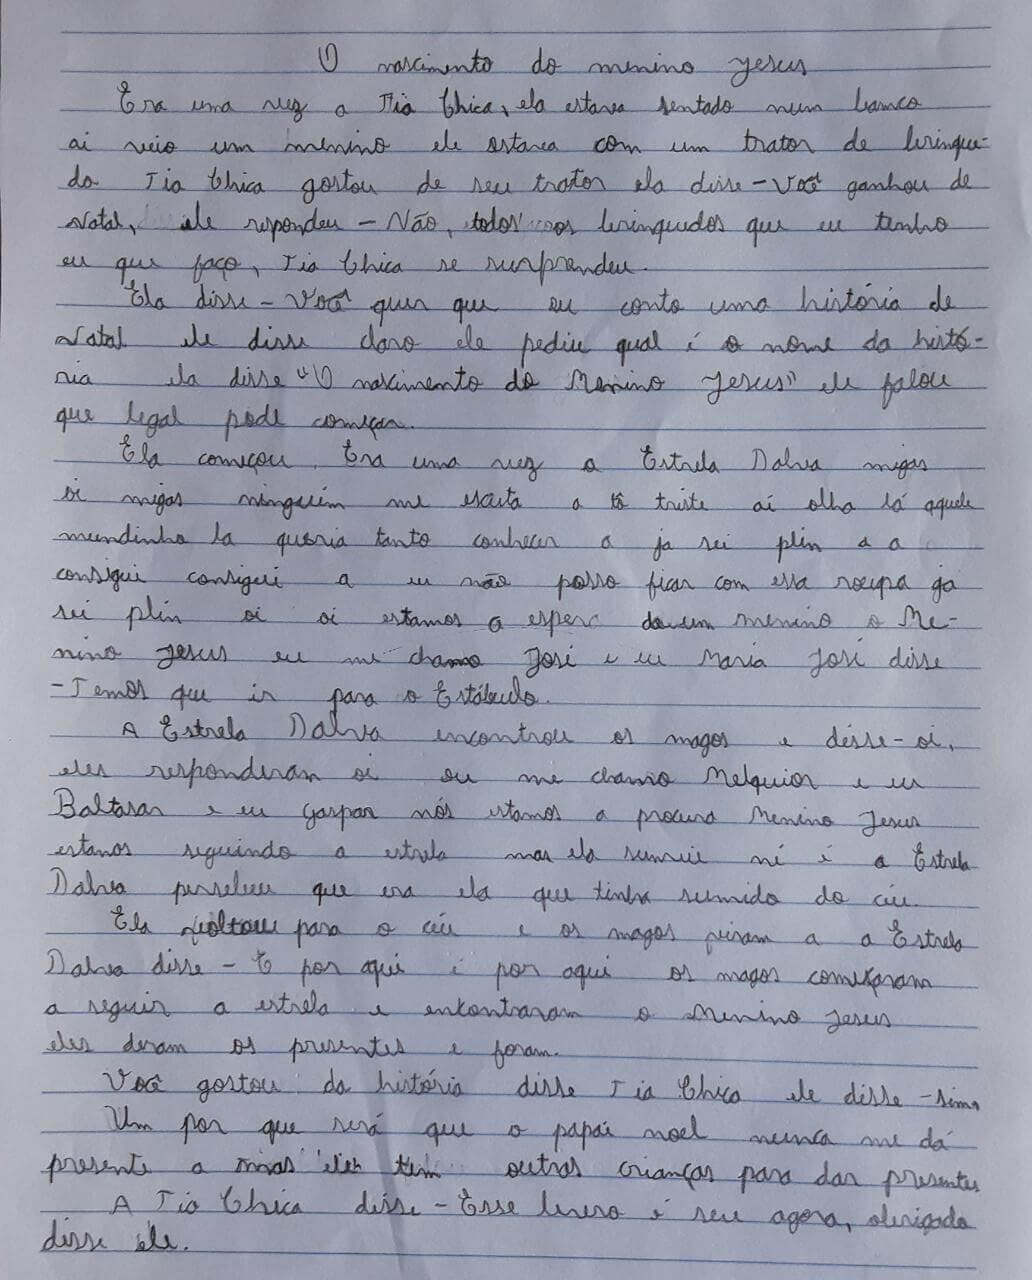 O nascimento do menino Jesus
Era uma vez a Tia Chica, ela estava sentado num banco
ai veio um menino ele estava com um trator de brinque-
do Tia Chica gostou de seu trator ela disse - Você ganhou de
Natal, ele repondeu - Não, todos os brinquedos que eu tenho
eu que faço, Tia Chica se surprendeu.
Ela disse - Você quer que eu conto uma história de
Natal ele disse claro ele pediu qual é o nome da histó-
ria ela disse "O nascimento do Menino Jesus" ele falou
que legal pode começar.
Ela começou. Era uma vez a Estrela Dalva migas
oi migas ninguém me escuta a tô triste ai olha lá aquele
mundinho la queria tanto conhecer a ja sei plin a a
consigui consigui a eu não posso ficar com essa roupa ja
sei plin oi oi estamos a espera de um menino o Me-
nino Jesus eu me chamo José e eu Maria José disse
- Temos que ir para o Estábulo.
A Estrela Dalva encontrou os magos e disse - oi,
eles responderam oi eu me chamo Melquior e eu
Baltasar e eu Gaspar nós estamos a procura Menino Jesus
estanos seguindo a estrela mas ela sumiu né é a Estrela
Dalva perselbeu que era ela que tinha sumido do céu.
Ela voltou para o céu e os magos viram a a Estrela
Dalva disse - É por aqui é por aqui os magos começaram
a seguir a estrela e encontraram o Menino Jesus
eles deram os presentes e foram.
Você gostou da história disse Tia Chica ele disse - sim
Um por que será que o papai noel nunca me dá
presente a mas ele tem outras crianças para dar presentes
A Tia Chica disse - Esse livro é seu agora, obrigada
disse ele.